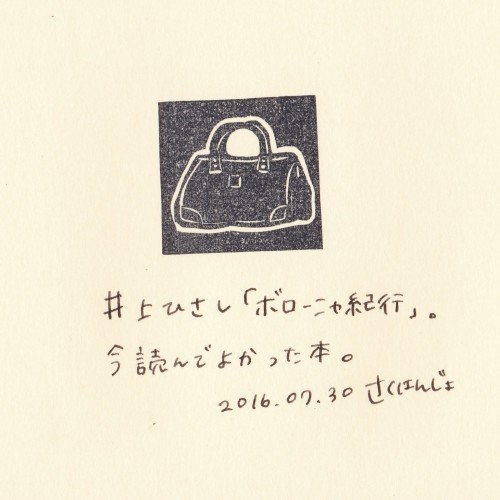 井上ひさし「ボローニャ紀行」。
今読んでよかった本。
2016.07.30 さくはんじょ